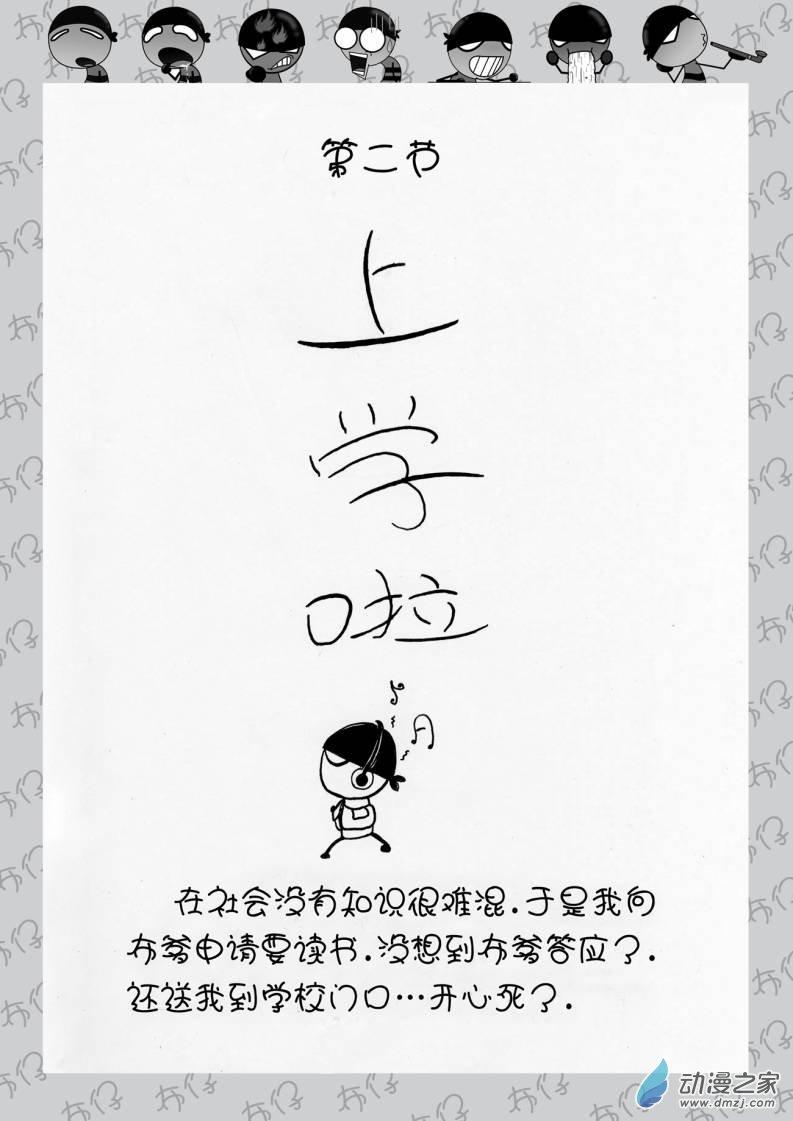 第二节
上
学
啦
在社会没有知识很难混.于是我向
布爹申请要读书.没想到布爹答应了.
还送我到学校门口…开心死了.
布仔
动漫之家
www.dmzj.com